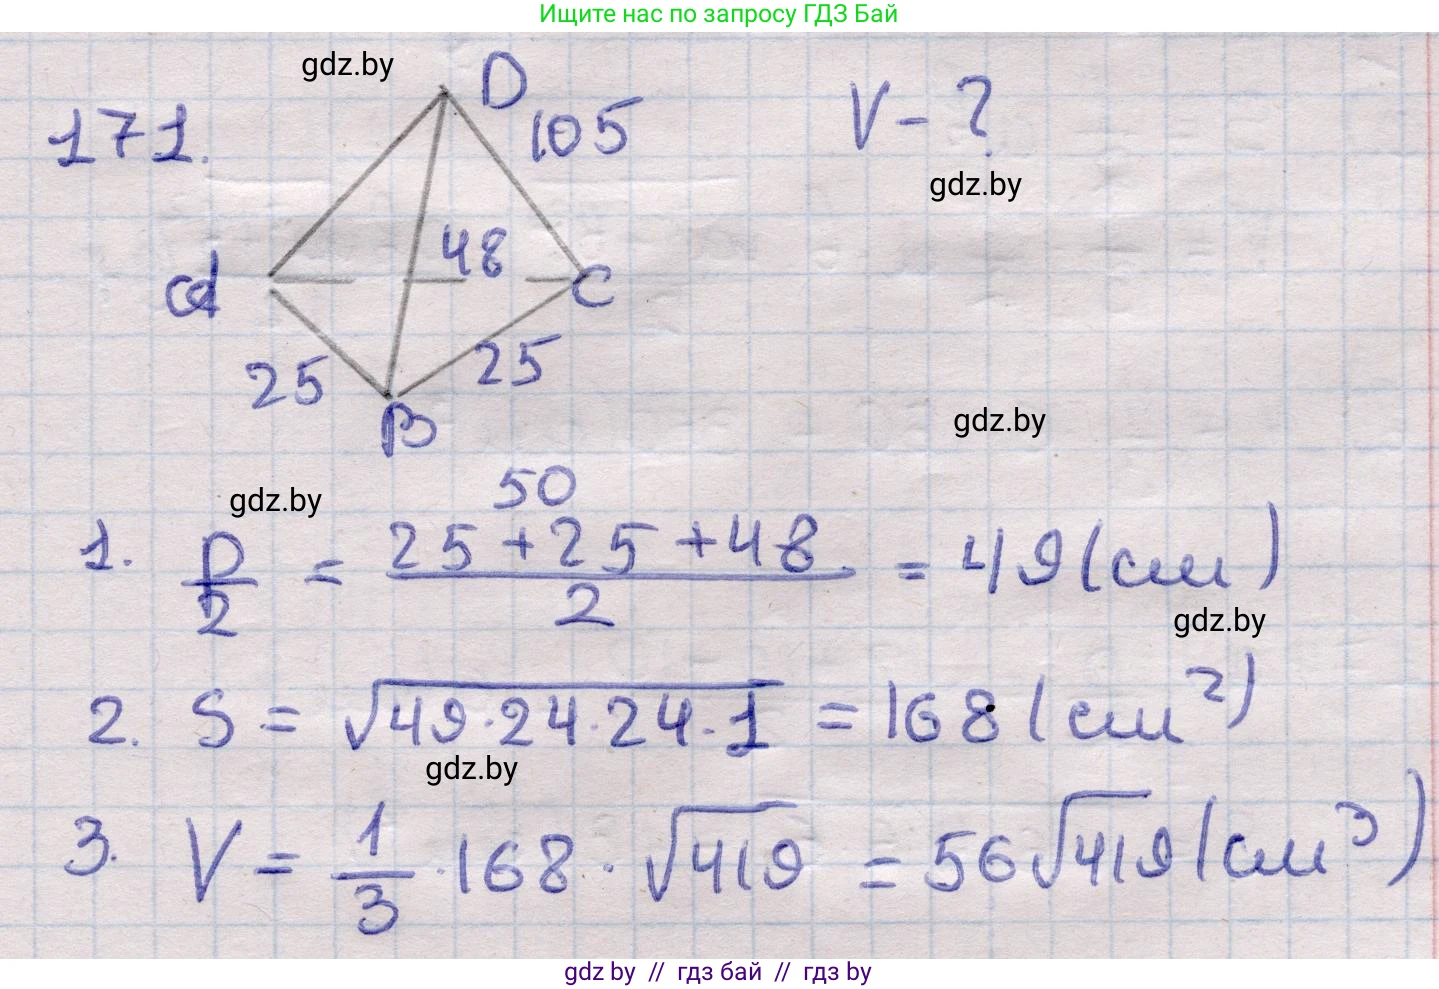 Ищите нас по запросу ГДЗ Бай
gdz.by
171.
D
105
V - ?
gdz.by
48
A
C
25
25
B
gdz.by
gdz.by
50
1. p/2 = (25 + 25 + 48)/2 = 49 (см)
gdz.by
2. S = √49·24·24·1 = 168 (см²)
gdz.by
3. V = 1/3 · 168 · √419 = 56√419 (см³)
gdz by // гдз бай // гдз by